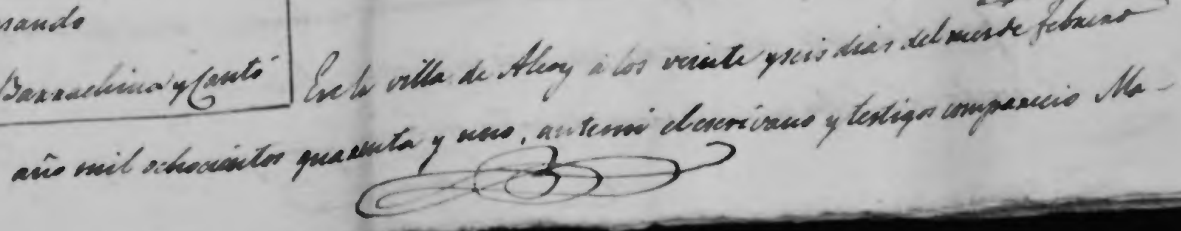 sando
Barrachina y Cantó
En la villa de Alcoy a los veinte y seis dias del mes de febrero
año mil ochocientos quarenta y uno, ante mi el escrivano y testigos comparecio Ma-